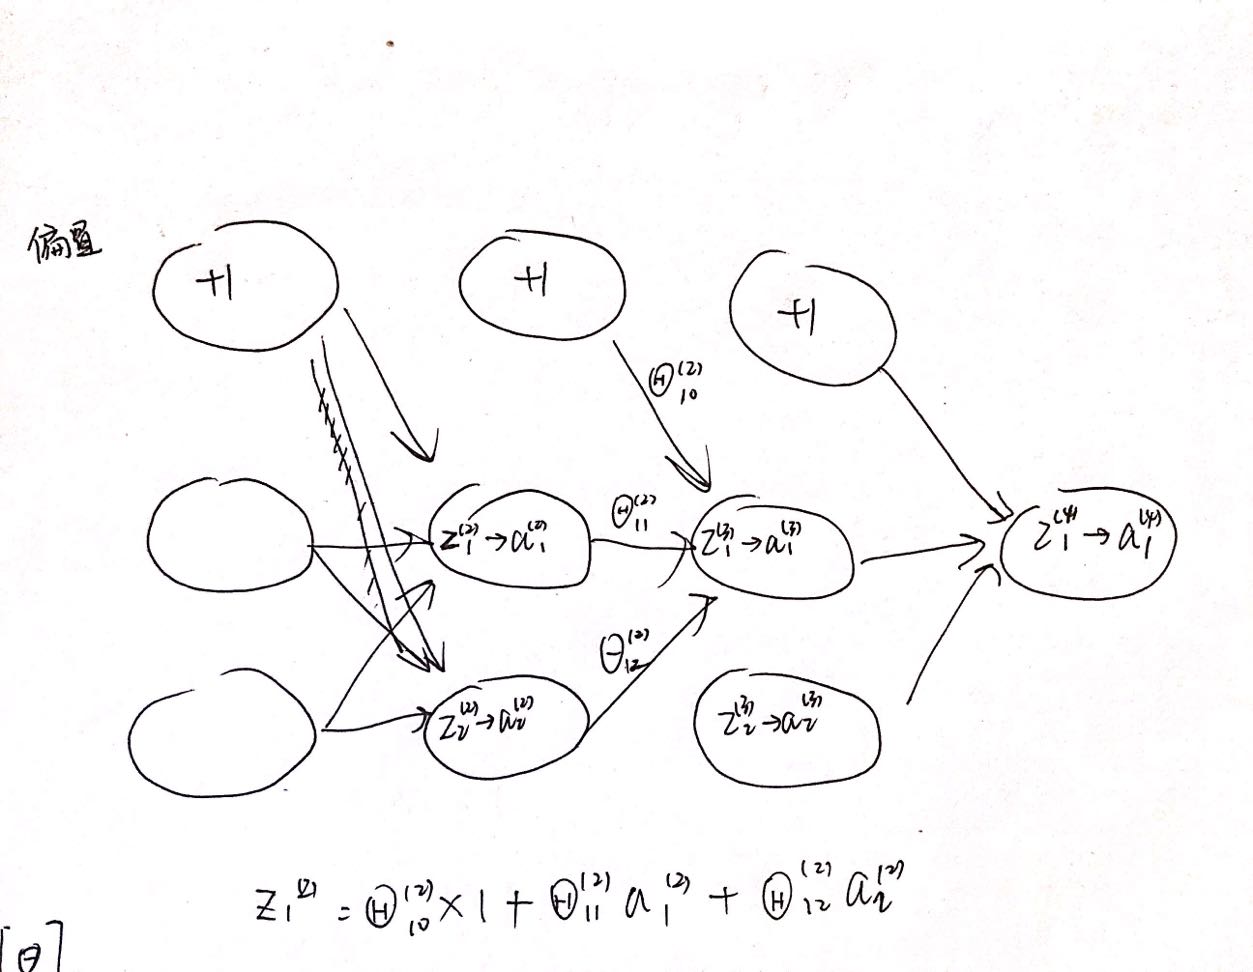 偏置
+1 +1 +1
Θ₁₀⁽²⁾
z₁⁽²⁾→a₁⁽²⁾ Θ₁₁⁽²⁾ z₁⁽³⁾→a₁⁽³⁾ z₁⁽⁴⁾→a₁⁽⁴⁾
Θ₁₂⁽²⁾
z₂⁽²⁾→a₂⁽²⁾ z₂⁽³⁾→a₂⁽³⁾
z₁⁽²⁾ = Θ₁₀⁽²⁾ × 1 + Θ₁₁⁽²⁾ a₁⁽²⁾ + Θ₁₂⁽²⁾ a₂⁽²⁾
[θ]